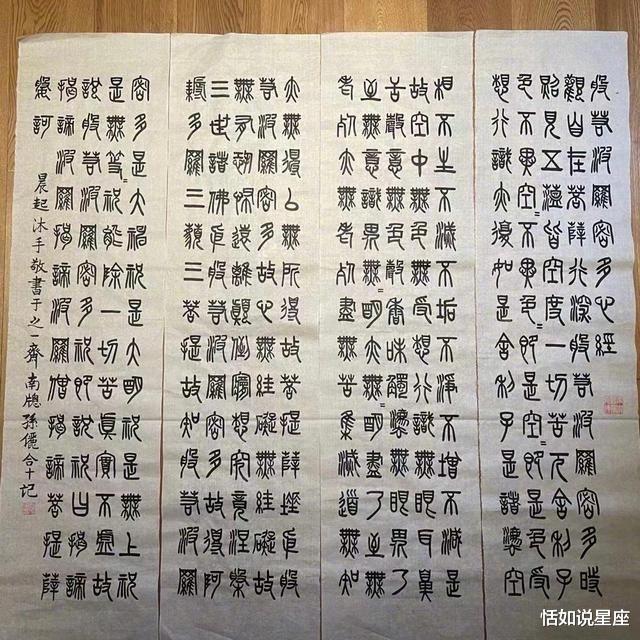 般若波羅密多心經
觀自在菩薩行深般若波羅密多時
照見五蘊皆空度一切苦厄舍利子
色不異空=不異色=即是空=即是色受
想行識亦復如是舍利子是諸法空
相不生不滅不垢不淨不增不減是
故空中無色無受想行識無眼耳鼻
舌身意無色聲香味觸法無眼界乃
至無意識界無=明亦無=明盡乃至無
老死亦無老死盡無苦集滅道無知
亦無得以無所得故菩提薩埵依般
若波羅密多故心無罣礙無罣礙故
無有恐怖遠離顛倒夢想究竟涅槃
三世諸佛依般若波羅密多故得阿
耨多羅三藐三菩提故知般若波羅
密多是大神咒是大明咒是無上咒
是無等=咒能除一切苦真實不虛故
說般若波羅密多咒即說咒曰揭諦
揭諦波羅揭諦波羅僧揭諦菩提薩
婆訶
晨起沐手敬書于之一齋南牕孫儷合十記
恬如说星座